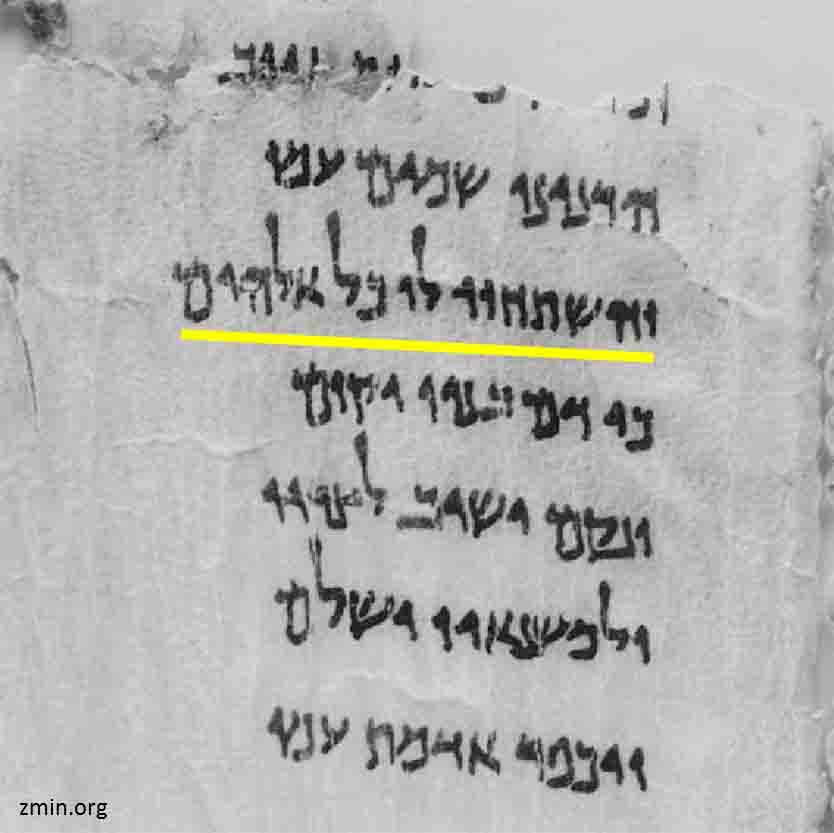 הרנינו שמים עמו
והשתחוו לו כל אלהים
כי דם בניו יקום
ונקם ישיב לצריו
ולמשנאיו ישלם
ויכפר אדמת עמו
zmin.org